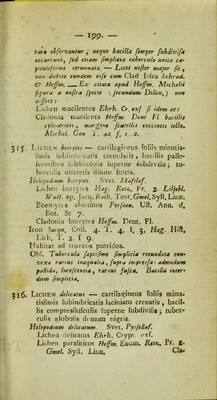 — 199. —
raro observantur, neque bacilla semper subdivisa
occurrunt, sed etiam simplicia tubercula unico ca-
pituliformi terminata. — Licet nostra major sit,
non dubito eundem esse cum Clad fulca Schrad.
& Hoffm. — Ex citata apud Hoffm. Michelii
figura a nostra specie (secundum Dolin,) non
differt:
Lichen macilentes Ehrh. Cr. exs. si idem ac:
Cladonia macilenta Hoffm. Deut Fl. bacillis
cylindricis, margine scutellis coccineis tollo.
Michel. Gen T. 42. f, 1. 2.
315. LICHEN botrytes — cartilagineus foliis minutis-
simis subimbricatis crenularis, bacillis pallo-
rescentibus subsimplicis superne subdivisis; tu-
berculis utriceris dilute fulcis.
Helopodium botrytes. Svet. Skaflaf.
Lichen botrytes Hag. Rete, Pr. 2 Liljebl.
Wulf. ap. Jacq. Koth, Tent, Gmel, Syst. Linn,
Boemyces abietinus Persoon. Ust. Ann. d,
Bot. S: 7.
Cladonia botrytes Hoffm. Deut. Fl.
Icon Jacqu, Coll. 4. T. 4, f, 3, Hag. Hist,
Lich, T. 2 f 9.
Habitat ad truncos putridos.
Obs. Tubercula sæpissime simplicia rotundata con-
vexa rarius inæqualia, supra impressa: admodum
pallida, lutescentia, rarius fusca. Bacilla inter-
dum simplicia,
316. LICHEN delicatus — cartilagineus foliis minu-
tissimis subimbricatis laciniato crenatis, bacil-
lis compressiusculis superne subdivisis; tuber-
culis globosis demum nigris.
Helopodium delicatum. Svet. Pyssellaf.
Lichen delicatus Ehrh. Crypt. exs.
Lichen parasiticus Hoffm. Enum. Retz, Pr. 2.
Gmel. Syst. Linn, Cla-